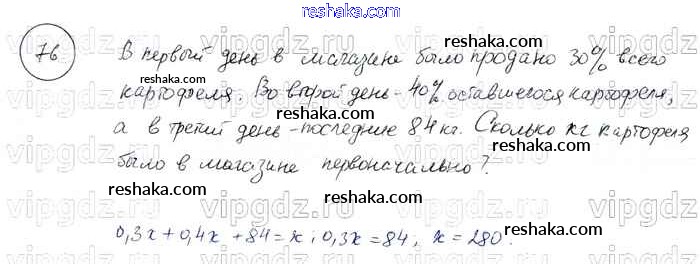 reshaka.com
76 В первый день в магазине было продано 30% всего
картофеля. Во второй день - 40% оставшегося картофеля,
а в третий день - последние 84 кг. Сколько кг картофеля
было в магазине первоначально?
0,3x + 0,4x + 84 = x; 0,3x = 84; x = 280.
vipgdz.com vipgdz.com vipgdz.com vipgdz.com
reshaka.com reshaka.com reshaka.com
reshaka.com
reshaka.com reshaka.com
reshaka.com
reshaka.com reshaka.com
reshaka.com